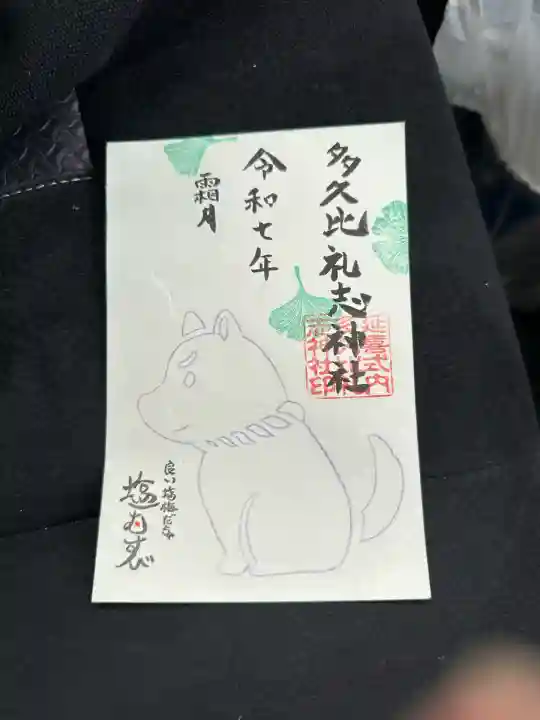 多久比礼志神社
延喜式内
志神社印
令和七年
霜月
良い塩梅だな
塩むすび